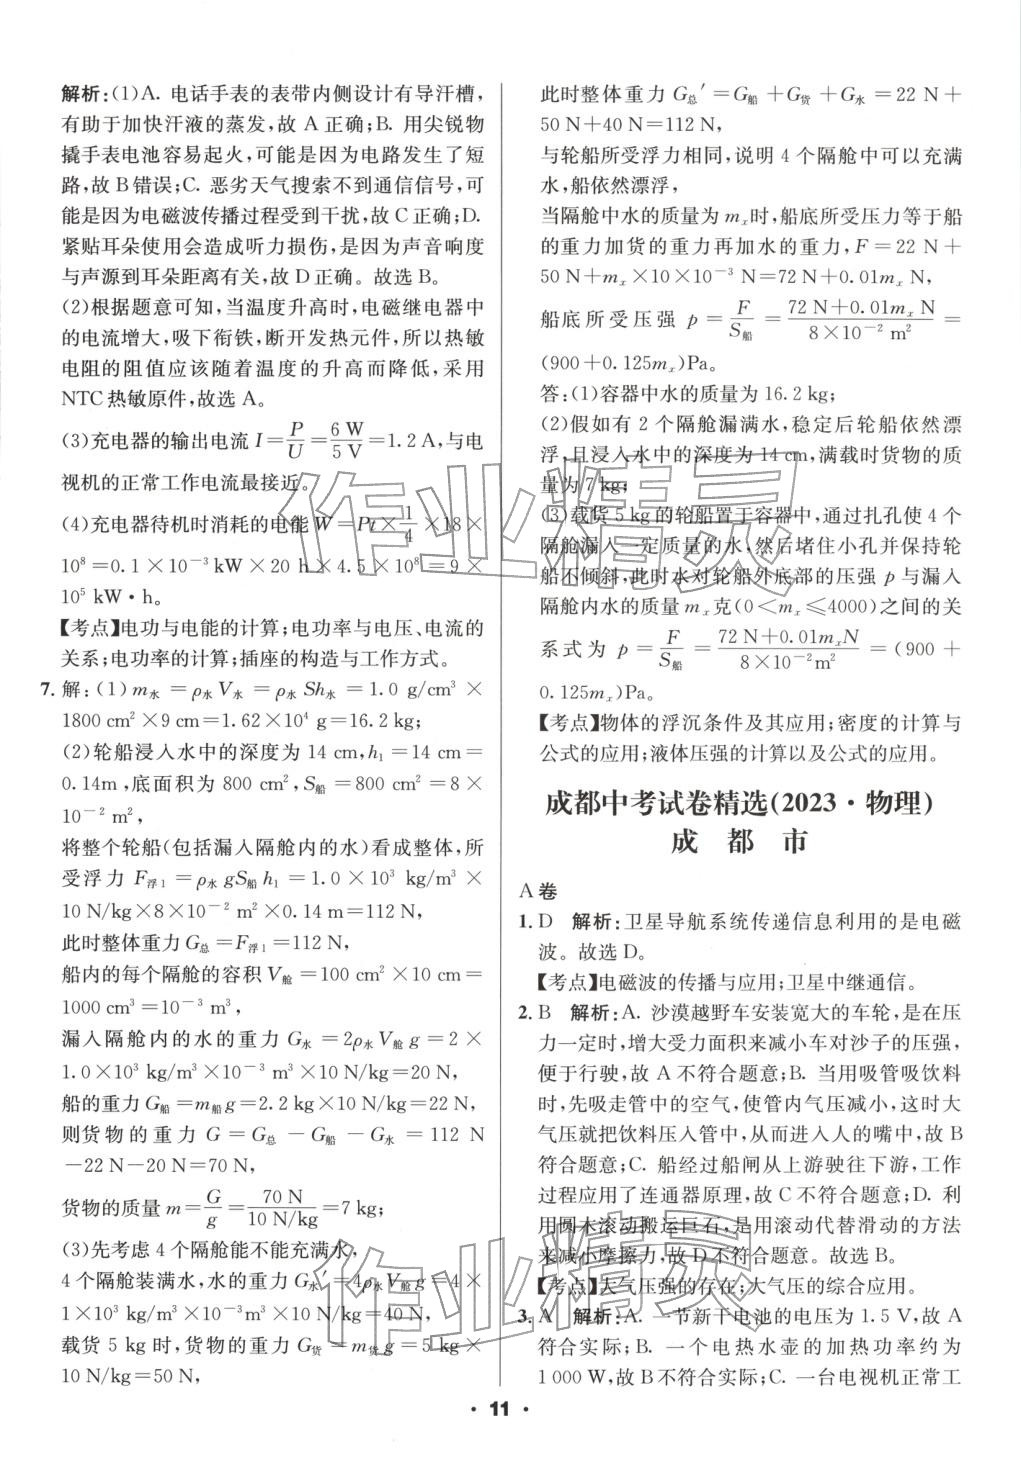 解析:(1)A. 电话手表的表带内侧设计有导汗槽,
有助于加快汗液的蒸发,故 A 正确;B. 用尖锐物
撬手表电池容易起火,可能是因为电路发生了短
路,故 B 错误;C. 恶劣天气搜索不到通信信号,可
能是因为电磁波传播过程受到干扰,故 C 正确;D.
紧贴耳朵使用会造成听力损伤,是因为声音响度
与声源到耳朵距离有关,故 D 正确。故选 B。
(2)根据题意可知,当温度升高时,电磁继电器中
的电流增大,吸下衔铁,断开发热元件,所以热敏
电阻的阻值应该随着温度的升高而降低,采用
NTC 热敏原件,故选 A。
(3)充电器的输出电流 I=P/U=6 W/5 V=1.2 A,与电
视机的正常工作电流最接近。
(4)充电器待机时消耗的电能 W=Pt×1/4×18×
10⁸=0.1×10⁻³ kW×20 h×4.5×10⁸=9×
10⁵ kW·h。
【考点】电功与电能的计算;电功率与电压、电流的
关系;电功率的计算;插座的构造与工作方式。
7. 解:(1)m水=ρ水V水=ρ水Sh水=1.0 g/cm³×
1800 cm²×9 cm=1.62×10⁴ g=16.2 kg;
(2)轮船浸入水中的深度为 14 cm,h₁=14 cm=
0.14m,底面积为 800 cm²,S船=800 cm²=8×
10⁻² m²,
将整个轮船(包括漏入隔舱内的水)看成整体,所
受浮力 F浮1=ρ水gS船h₁=1.0×10³ kg/m³×
10 N/kg×8×10⁻² m²×0.14 m=112 N,
此时整体重力 G总=F浮1=112 N,
船内的每个隔舱的容积 V舱=100 cm²×10 cm=
1000 cm³=10⁻³ m³,
漏入隔舱内的水的重力 G水=2ρ水V舱g=2×
1.0×10³ kg/m³×10⁻³ m³×10 N/kg=20 N,
船的重力 G船=m船g=2.2 kg×10 N/kg=22 N,
则货物的重力 G=G总-G船-G水=112 N
-22 N-20 N=70 N,
货物的质量 m=G/g=70 N/10 N/kg=7 kg;
(3)先考虑 4 个隔舱能不能充满水,
4 个隔舱装满水,水的重力 G水′=4ρ水V舱g=4×
1×10³ kg/m³×10⁻³ m³×10 N/kg=40 N,
载货 5 kg 时,货物的重力 G货=m货g=5 kg×
10 N/kg=50 N,
此时整体重力 G总′=G船+G货+G水=22 N+
50 N+40 N=112 N,
与轮船所受浮力相同,说明 4 个隔舱中可以充满
水,船依然漂浮,
当隔舱中水的质量为 mₓ时,船底所受压力等于船
的重力加货的重力再加水的重力,F=22 N+
50 N+mₓ×10×10⁻³ N=72 N+0.01mₓ N,
船底所受压强 p=F/S船=72 N+0.01mₓ N/8×10⁻² m²=
(900+0.125mₓ)Pa。
答:(1)容器中水的质量为 16.2 kg;
(2)假如有 2 个隔舱漏满水,稳定后轮船依然漂
浮,且浸入水中的深度为 14 cm,满载时货物的质
量为 7 kg;
(3)载货 5 kg 的轮船置于容器中,通过扎孔使 4 个
隔舱漏入一定质量的水,然后堵住小孔并保持轮
船不倾斜,此时水对轮船外底部的压强 p 与漏入
隔舱内水的质量 mₓ克(0<mₓ≤4000)之间的关
系式为 p=F/S船=72 N+0.01mₓN/8×10⁻²m²=(900+
0.125mₓ)Pa。
【考点】物体的浮沉条件及其应用;密度的计算与
公式的应用;液体压强的计算以及公式的应用。
成都中考试卷精选(2023·物理)
成 都 市
A 卷
1. D 解析:卫星导航系统传递信息利用的是电磁
波。故选 D。
【考点】电磁波的传播与应用;卫星中继通信。
2. B 解析:A. 沙漠越野车安装宽大的车轮,是在压
力一定时,增大受力面积来减小车对沙子的压强,
故 A 不符合题意;B. 当用吸管吸饮料
时,先吸走管中的空气,使管内气压减小,这时大
气压就把饮料压入管中,从而进入人的嘴中,故 B
符合题意;C. 船经过船闸从上游驶往下游,工作
过程应用了连通器原理,故 C 不符合题意;D. 利
用圆木滚动搬运巨石,是用滚动代替滑动的方法
来减小摩擦力,故 D 不符合题意。故选 B。
【考点】大气压强的存在;大气压的综合应用。
3. A 解析:A. 一节新干电池的电压为 1.5 V,故 A
符合实际;B. 一个电热水壶的加热功率约为
1 000 W,故 B 不符合实际;C. 一台电视机正常工
· 11 ·
作业精灵
作业精灵